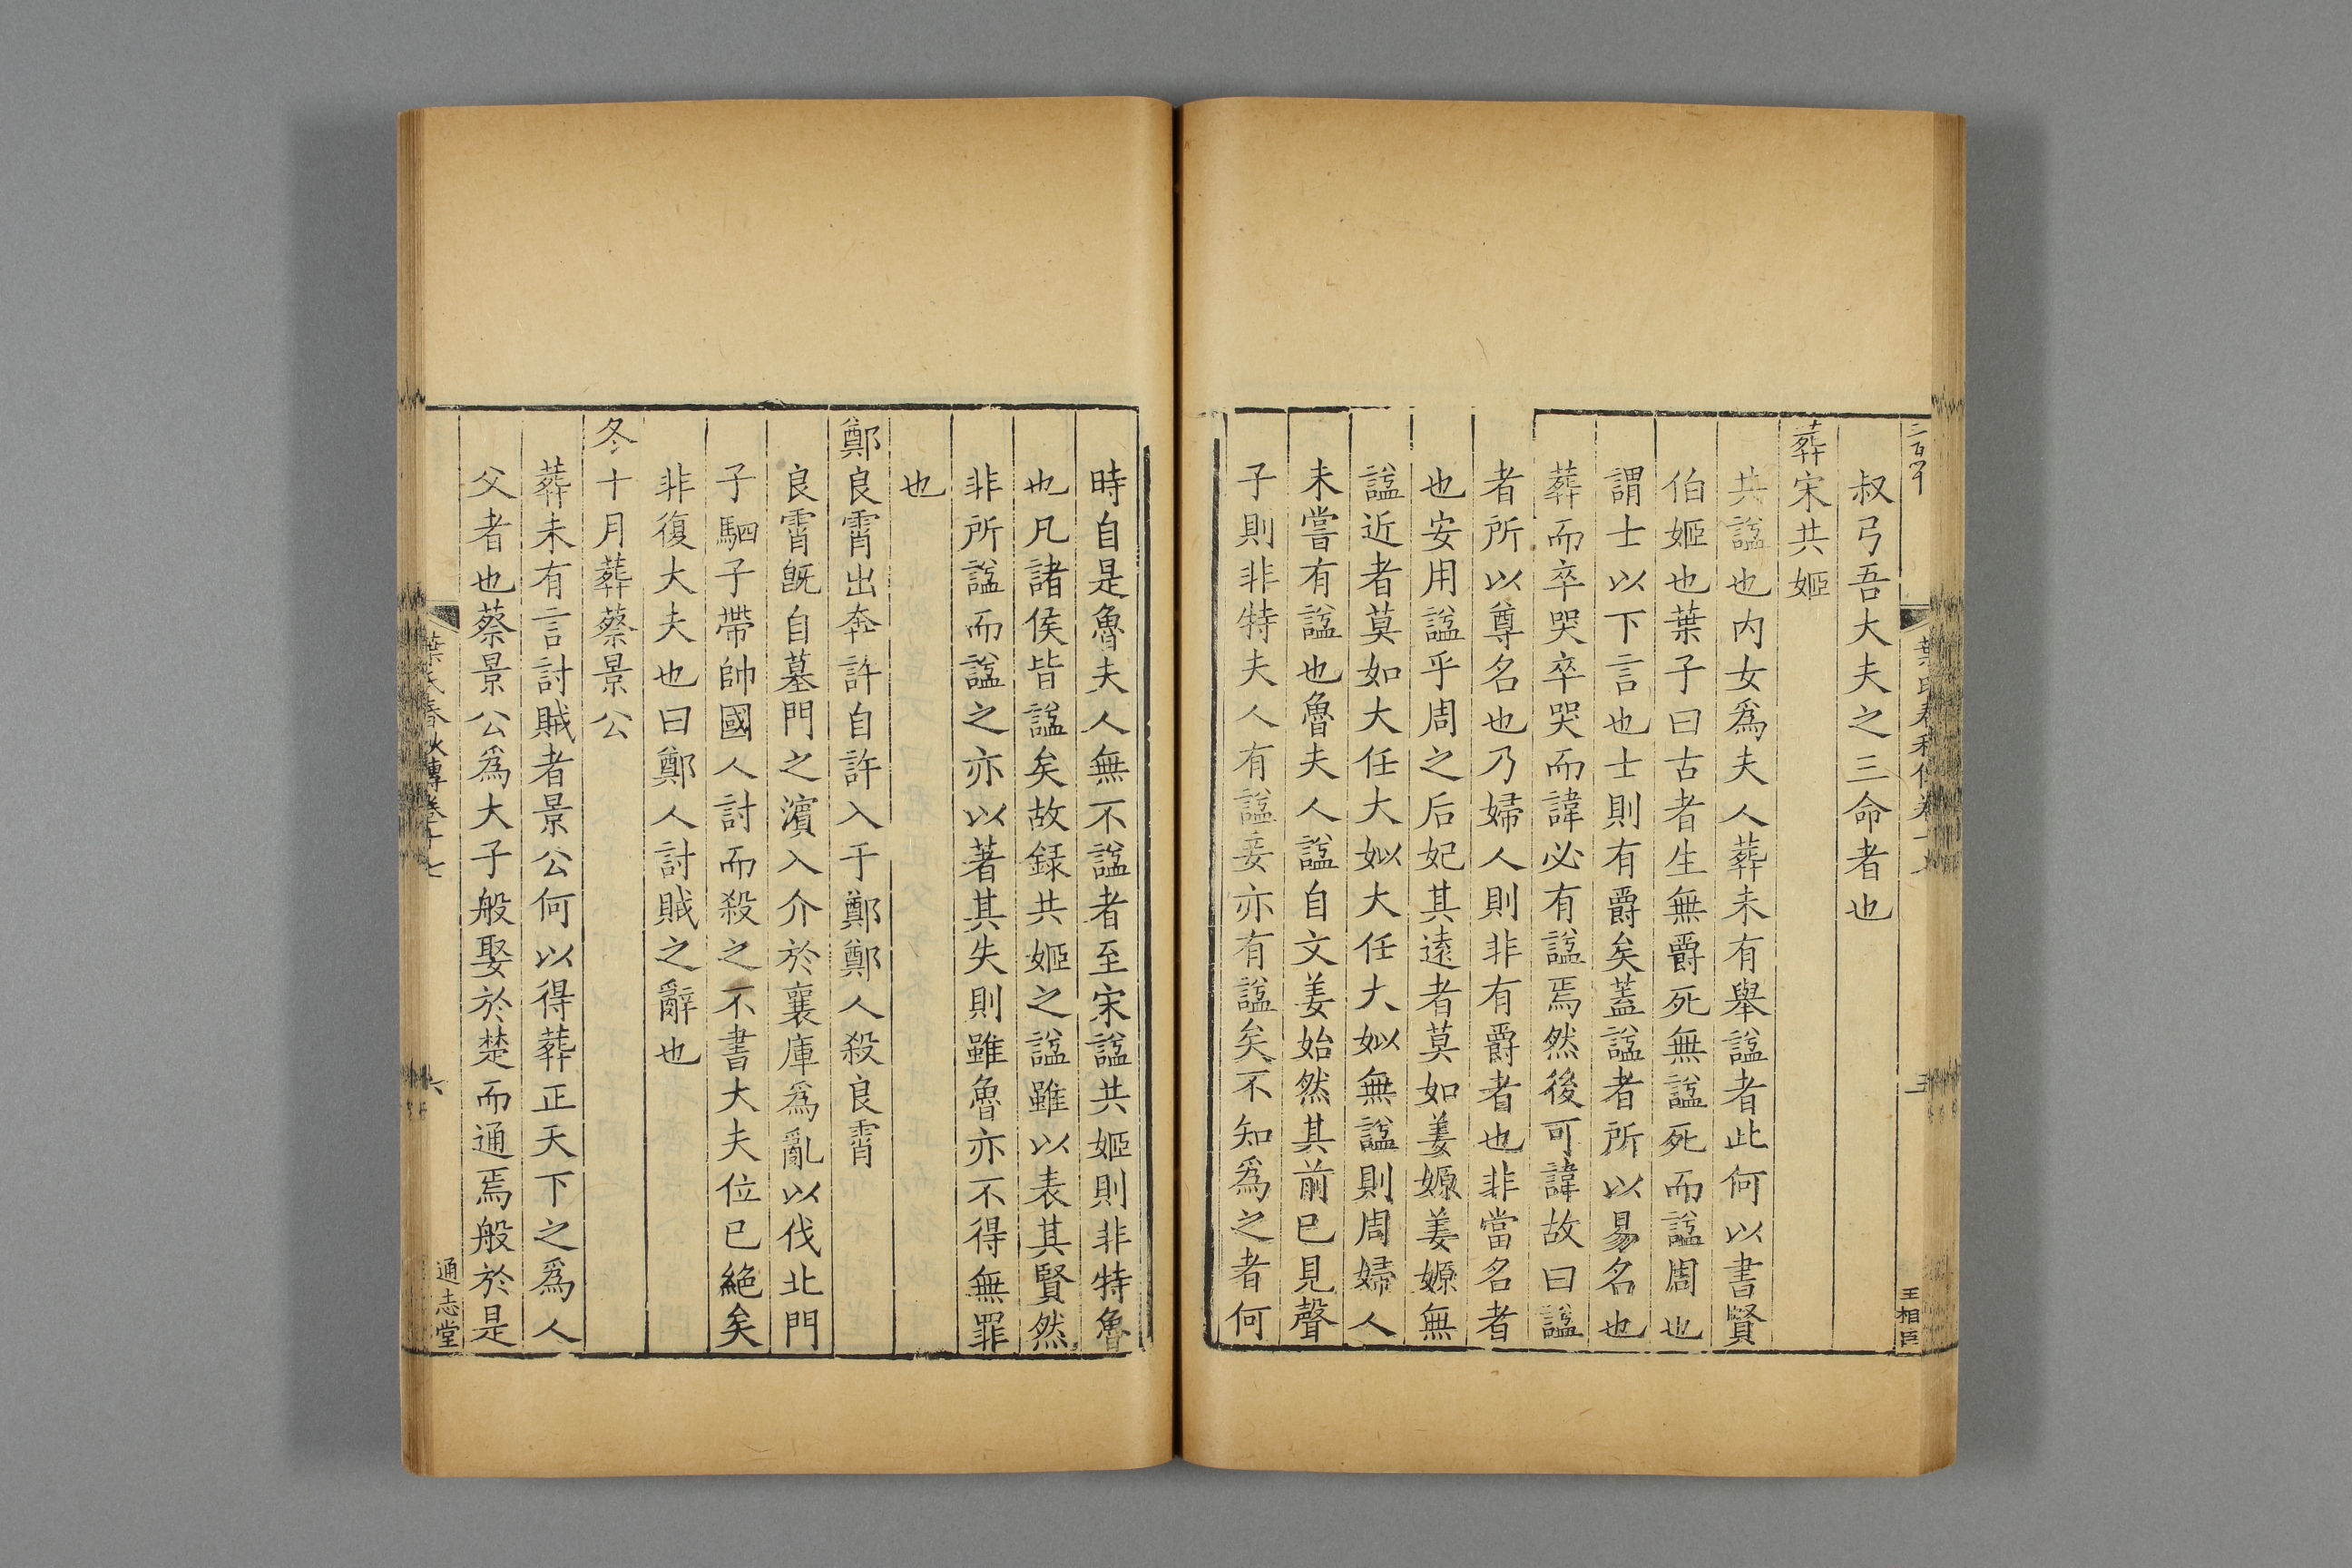 叔弓吾大夫之三命者也
葬宋共姬
共諡也内女爲夫人葬未有舉諡者此何以書賢
伯姬也葉子曰古者生無爵死無諡死而諡周也
謂士以下言也士則有爵矣蓋諡者所以易名也
葬而卒哭卒哭而諱必有諡焉然後可諱故曰諡
者所以尊名也乃婦人則非有爵者也非當名者
也安用諡乎周之后妃其遠者莫如姜嫄姜嫄無
諡近者莫如大任大姒大任大姒無諡則周婦人
未嘗有諡也魯夫人諡自文姜始然其前已見聲
子則非特夫人有諡妾亦有諡矣不知爲之者何
王相臣
時自是魯夫人無不諡者至宋諡共姬則非特魯
也凡諸侯皆諡矣故録共姬之諡雖以表其賢然
非所諡而諡之亦以著其失則雖魯亦不得無罪
也
鄭良霄出奔許自許入于鄭鄭人殺良霄
良霄旣自墓門之瀆入介於襄庫爲亂以伐北門
子駟子帶帥國人討而殺之不書大夫位已絶矣
非復大夫也曰鄭人討賊之辭也
冬十月葬蔡景公
葬未有言討賊者景公何以得葬正天下之爲人
父者也蔡景公爲大子般娶於楚而通焉般於是
葉氏春秋傳卷十七
六
通志堂